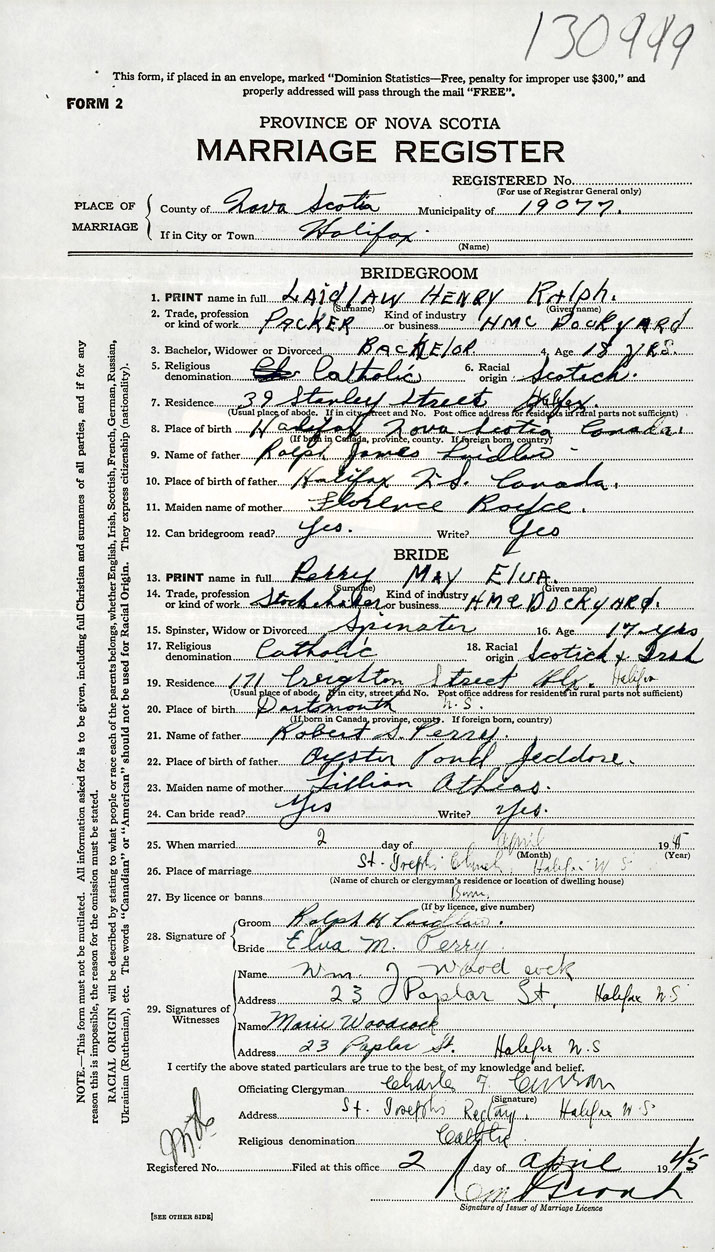 130949
This form, if placed in an envelope, marked "Dominion Statistics—Free, penalty for improper use $300," and
properly addressed will pass through the mail "FREE".
FORM 2
PROVINCE OF NOVA SCOTIA
MARRIAGE REGISTER
REGISTERED No.
(For use of Registrar General only)
PLACE OF MARRIAGE
County of Nova Scotia Municipality of 19077.
If in City or Town Halifax.
(Name)
BRIDEGROOM
1. PRINT name in full LAidlAw HENRY RAlph.
(Surname) (Given name)
2. Trade, profession or kind of work PACKER Kind of industry or business HMC DOCKYARD
3. Bachelor, Widower or Divorced BACHElOR 4. Age 18 YRS.
5. Religious denomination Catholic 6. Racial origin Scotich.
7. Residence 39 Stanley Street Halifax
(Usual place of abode. If in city, street and No. Post office address for residents in rural parts not sufficient)
8. Place of birth Halifax Nova Scotia Canada.
(If born in Canada, province, county. If foreign born, country)
9. Name of father Ralph James Laidlaw
10. Place of birth of father Halifax N.S. Canada.
11. Maiden name of mother Florence
12. Can bridegroom read? Yes. Write? Yes
BRIDE
13. PRINT name in full Perry MAY ElvA.
(Surname) (Given name)
14. Trade, profession or kind of work Kind of industry or business HMC DOCKYARD.
15. Spinster, Widow or Divorced Spinster 16. Age 17 yrs
17. Religious denomination Catholic 18. Racial origin Scotich & Irsh
19. Residence 171 Creighton Street Hfx. Halifax
(Usual place of abode. If in city, street and No. Post office address for residents in rural parts not sufficient)
20. Place of birth Dartmouth N.S.
(If born in Canada, province, county. If foreign born, country)
21. Name of father Robert S. Perry.
22. Place of birth of father Oyster Pond Jeddore.
23. Maiden name of mother Lillian
24. Can bride read? Yes Write? Yes.
25. When married 2 day of April 1945
(Month) (Year)
26. Place of marriage St. Josephs Church, Halifax N S
(Name of church or clergyman's residence or location of dwelling house)
27. By licence or banns
(If by licence, give number)
28. Signature of
Groom Ralph H Laidlaw.
Bride Elva M. Perry
29. Signatures of Witnesses
Name Wm. J Woodcock
Address 23 Poplar St, Halifax N.S
Name Marie Woodcock
Address 23 Poplar St. Halifax N.S
I certify the above stated particulars are true to the best of my knowledge and belief.
Officiating Clergyman Charles F Curran
(Signature)
Address St. Josephs Rectory, Halifax N.S.
Religious denomination Catholic
Registered No. Filed at this office 2 day of April 1945
Signature of Issuer of Marriage Licence
[SEE OTHER SIDE]
NOTE.—This form must not be mutilated. All information asked for is to be given, including full Christian and surnames of all parties, and if for any
reason this is impossible, the reason for the omission must be stated.
RACIAL ORIGIN will be described by stating to what people or race each of the parents belongs, whether English, Irish, Scottish, French, German, Russian,
Ukrainian (Ruthenian), etc. The words "Canadian" or "American" should not be used for Racial Origin. They express citizenship (nationality).